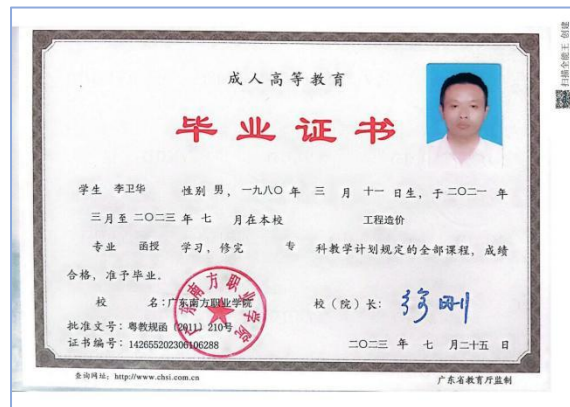 成人高等教育
毕业证书
学生 李卫华 性别 男，一九八〇年 三 月 十一 日生，于二〇二一 年
三月至二〇二三 年 七 月在本校 工程造价
专业 函授 学习，修完 专 科教学计划规定的全部课程，成绩
合格，准予毕业。
校 名：广东南方职业学院 校（院）长：
批准文号：粤教规函（2011）210号
证书编号：142655202306106288
二〇二三 年 七 月二十五 日
查询网址：http://www.chsi.com.cn
广东省教育厅监制
广东南方职业学院
扫描全能王 创建